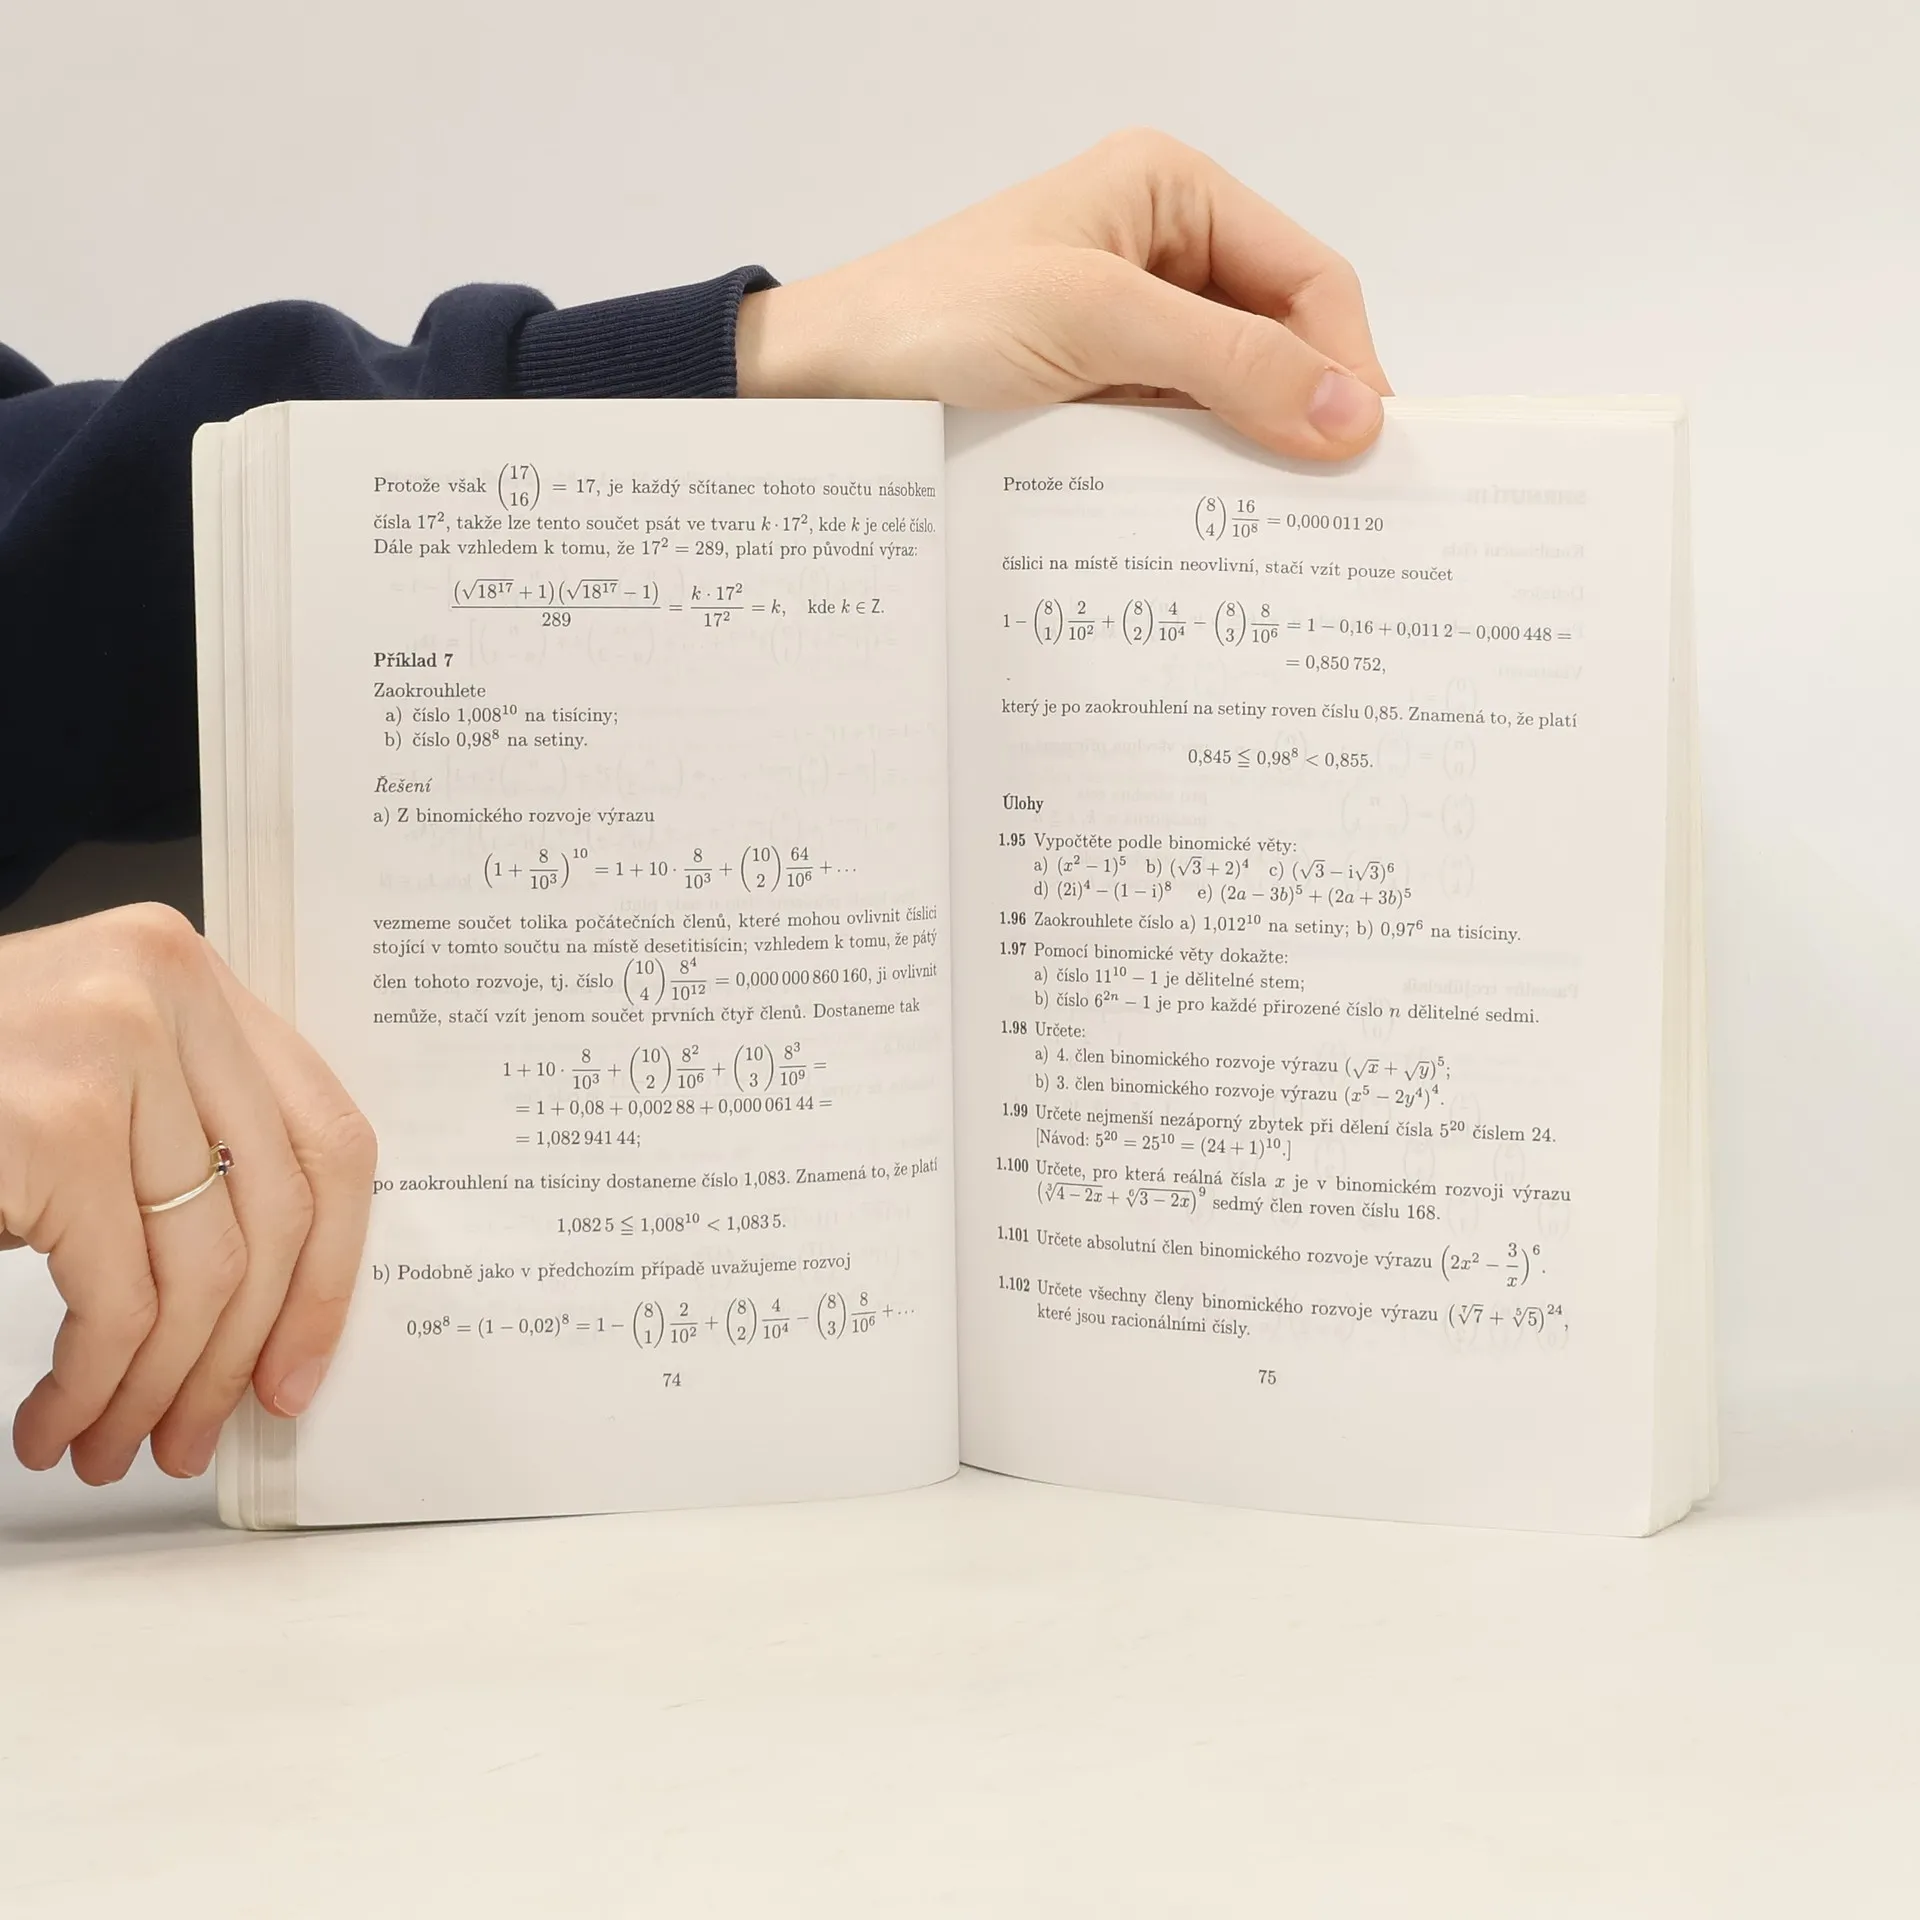 Protože však (17 16) = 17, je každý sčítanec tohoto součtu násobkem
čísla 17², takže lze tento součet psát ve tvaru k · 17², kde k je celé číslo.
Dále pak vzhledem k tomu, že 17² = 289, platí pro původní výraz:
(√18¹⁷ + 1)(√18¹⁷ − 1) / 289 = k · 17² / 17² = k, kde k ∈ Z.
Příklad 7
Zaokrouhlete
a) číslo 1,008¹⁰ na tisíciny;
b) číslo 0,98⁸ na setiny.
Řešení
a) Z binomického rozvoje výrazu
(1 + 8/10³)¹⁰ = 1 + 10 · 8/10³ + (10 2) 64/10⁶ + …
vezmeme součet tolika počátečních členů, které mohou ovlivnit číslici
stojící v tomto součtu na místě desetitisícin; vzhledem k tomu, že pátý
člen tohoto rozvoje, tj. číslo (10 4) 8⁴/10¹² = 0,000 000 860 160, ji ovlivnit
nemůže, stačí vzít jenom součet prvních čtyř členů. Dostaneme tak
1 + 10 · 8/10³ + (10 2) 8²/10⁶ + (10 3) 8³/10⁹ =
= 1 + 0,08 + 0,002 88 + 0,000 061 44 =
= 1,082 941 44;
po zaokrouhlení na tisíciny dostaneme číslo 1,083. Znamená to, že platí
1,082 5 ≦ 1,008¹⁰ < 1,083 5.
b) Podobně jako v předchozím případě uvažujeme rozvoj
0,98⁸ = (1 − 0,02)⁸ = 1 − (8 1) 2/10² + (8 2) 4/10⁴ − (8 3) 8/10⁶ + …
74
Protože číslo
(8 4) 16/10⁸ = 0,000 011 20
číslici na místě tisícin neovlivní, stačí vzít pouze součet
1 − (8 1) 2/10² + (8 2) 4/10⁴ − (8 3) 8/10⁶ = 1 − 0,16 + 0,011 2 − 0,000 448 =
= 0,850 752,
který je po zaokrouhlení na setiny roven číslu 0,85. Znamená to, že platí
0,845 ≦ 0,98⁸ < 0,855.
Úlohy
1.95 Vypočtěte podle binomické věty:
a) (x² − 1)⁵ b) (√3 + 2)⁴ c) (√3 − i√3)⁶
d) (2i)⁴ − (1 − i)⁸ e) (2a − 3b)⁵ + (2a + 3b)⁵
1.96 Zaokrouhlete číslo a) 1,012¹⁰ na setiny; b) 0,97⁶ na tisíciny.
1.97 Pomocí binomické věty dokažte:
a) číslo 11¹⁰ − 1 je dělitelné stem;
b) číslo 6²ⁿ − 1 je pro každé přirozené číslo n dělitelné sedmi.
1.98 Určete:
a) 4. člen binomického rozvoje výrazu (√x + √y)⁵;
b) 3. člen binomického rozvoje výrazu (x⁵ − 2y⁴)⁴.
1.99 Určete nejmenší nezáporný zbytek při dělení čísla 5²⁰ číslem 24.
[Návod: 5²⁰ = 25¹⁰ = (24 + 1)¹⁰.]
1.100 Určete, pro která reálná čísla x je v binomickém rozvoji výrazu
(∛4 − 2x + ⁶√3 − 2x)⁹ sedmý člen roven číslu 168.
1.101 Určete absolutní člen binomického rozvoje výrazu (2x² − 3/x)⁶.
1.102 Určete všechny členy binomického rozvoje výrazu (⁷√7 + ⁵√5)²⁴,
které jsou racionálními čísly.
75